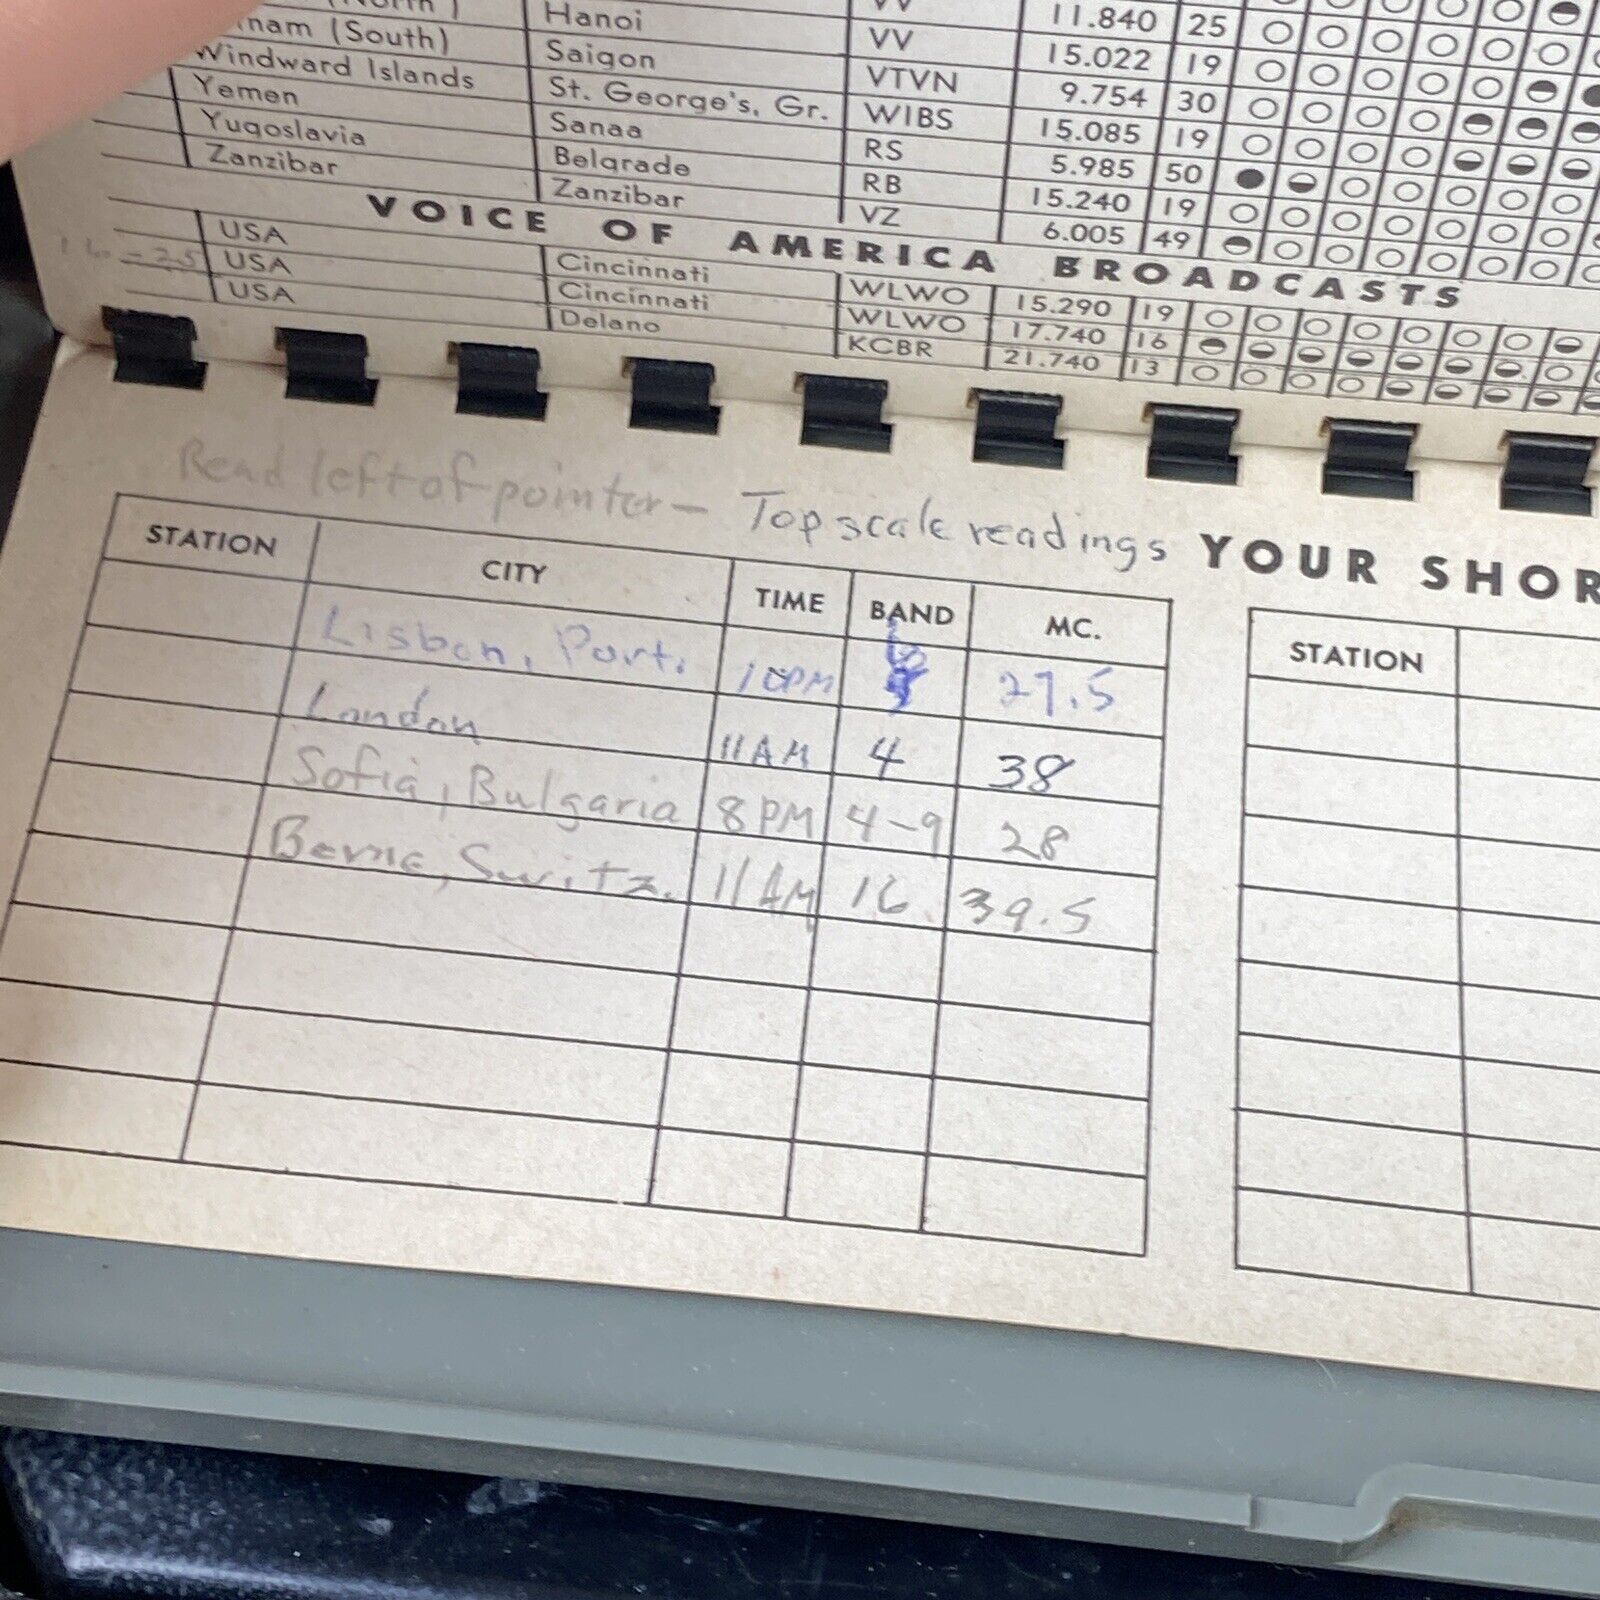 Hanoi 11.840 25
nam (South) Saigon VV 15.022 19
Windward Islands St. George's, Gr. VTVN 9.754 30
Yemen Sanaa WIBS 15.085 19
Yugoslavia Belgrade RS 5.985 50
Zanzibar Zanzibar RB 15.240 19
VZ 6.005 49
VOICE OF AMERICA BROADCASTS
USA Cincinnati WLWO 15.290 19
USA Cincinnati WLWO 17.740 16
USA Delano KCBR 21.740 13
Read left of pointer — Top scale readings YOUR SHOR
STATION CITY TIME BAND MC. STATION
Lisbon, Port. 10PM 27.5
London 11AM 4 38
Sofia, Bulgaria 8PM 4-9 28
Berne, Switz. 11AM 16 39.5